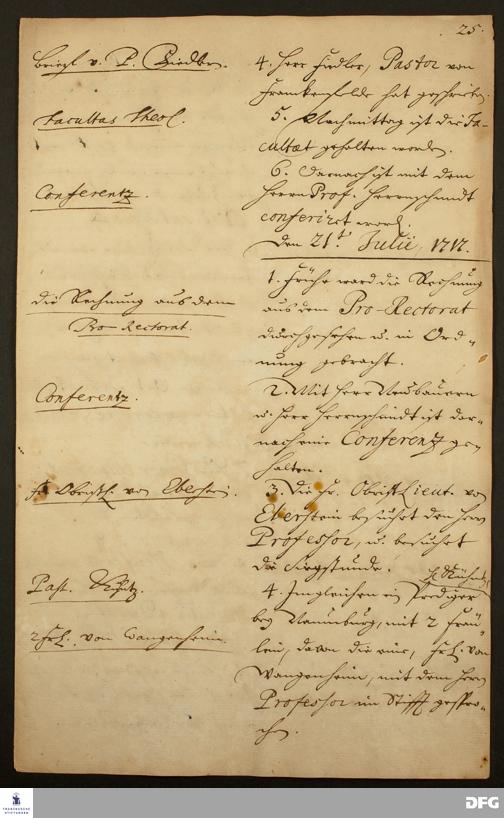 25.
Brief v. P. Fiedler.
4. Herr Fiedler, Pastor von
Franckenfelde hat geschrieben.
Facultas Theol.
5. Nachmittag ist die Fa-
cultæt gehalten worden.
Conferentz.
6. Darnach ist mit dem
Herrn Prof. Herrnschmidt
conferiret word.
Den 21t. Julii, 1717.
die Rechnung aus dem
Pro-Rectorat.
1. Frühe ward die Rechnung
aus dem Pro-Rectorat
durchgesehen u. in Ord-
nung gebracht.
Conferentz.
2. Mit Herr Neubauern
u. Herr Herrnschmidt ist dar-
nach eine Conferentz ge-
halten.
Obristl. von Eberstein.
3. Die Fr. Obrist Lieut. von
Eberstein besuchet den Herrn
Professor, u. besuchet
die Singstunde.
Past.
4. Imgleichen ein Prediger
bey Naumburg, mit 2 Fräu-
2 Frl. von Wangenheim.
lein, davon die eine, Frl. von
Wangenheim, mit dem Herrn
Professor im Stifft gespro-
chen.
FRANCKESCHE
STIFTUNGEN
DFG